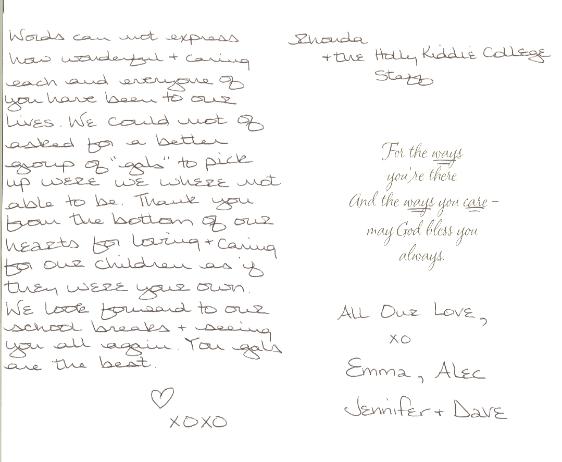 Words can not express
how wonderful + caring
each and everyone of
you have been to our
lives. We could not of
asked for a better
group of "gals" to pick
up were we where not
able to be. Thank you
from the bottom of our
hearts for loving + caring
for our children as if
they were your own.
We look forward to our
school breaks + seeing
you all again. You gals
are the best.
♡
XOXO
Rhonda
+ the Holly Kiddie College
Staff
For the ways
you're there
And the ways you care –
may God bless you
always.
All Our Love,
XO
Emma, Alec
Jennifer + Dave